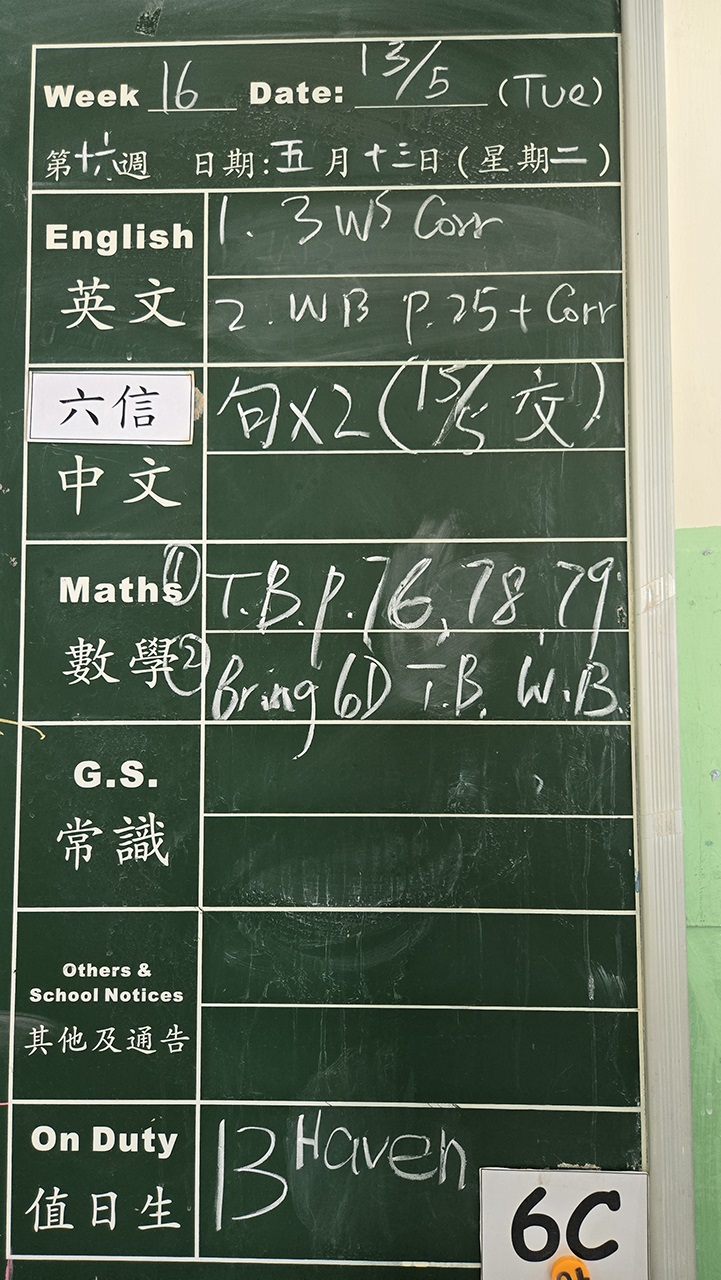 Week 16 Date: 13/5 (Tue)
第十六週 日期:五月十三日(星期二)
English 1. 3 WS Corr
英文 2. WB P.25 + Corr
六信 句X2 (15/5 交)
中文
Maths ① T.B. p.76, 78, 79
數學 ② Bring 6D T.B. W.B.
G.S.
常識
Others &
School Notices
其他及通告
On Duty 13 Haven
值日生
6C